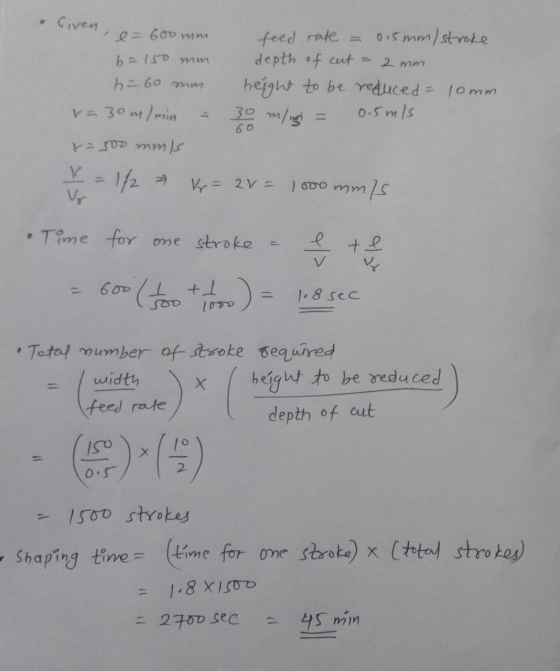 • Given, l = 600 mm feed rate = 0.5 mm/stroke
b = 150 mm depth of cut = 2 mm
h = 60 mm height to be reduced = 10 mm
v = 30 m/min = 30/60 m/s = 0.5 m/s
v = 500 mm/s
v/Vr = 1/2 ⇒ Vr = 2V = 1000 mm/s
• Time for one stroke = l/V + l/Vr
= 600 (1/500 + 1/1000) = 1.8 sec
• Total number of stroke required
= (width/feed rate) × (height to be reduced/depth of cut)
= (150/0.5) × (10/2)
= 1500 strokes
• Shaping time = (time for one stroke) × (total strokes)
= 1.8 × 1500
= 2700 sec = 45 min